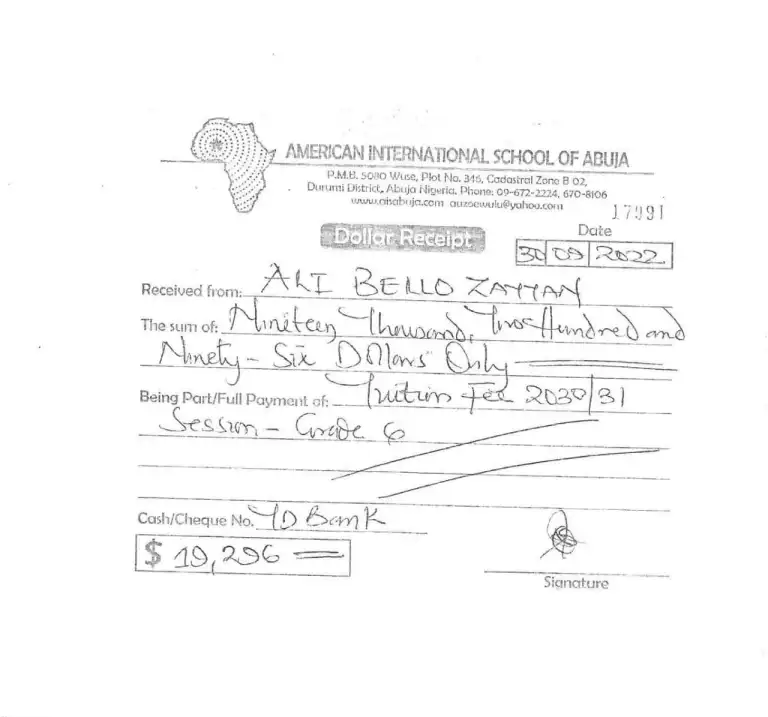 AMERICAN INTERNATIONAL SCHOOL OF ABUJA
P.M.B. 5080 Wuse, Plot No. 346, Cadastral Zone B 02,
Durumi District, Abuja Nigeria. Phone: 09-672-2224, 670-8106
www.aisabuja.com auzoewulu@yahoo.com
17991
Dollar Receipt
Date
30 09 2022
Received from: ALI BELLO
The sum of: Nineteen Thousand, Two Hundred and
Ninety-Six Dollars Only
Being Part/Full Payment of: Tuition Fee 2030/31
Session - Grade 6
Cash/Cheque No. TD Bank
$ 19,296
Signature